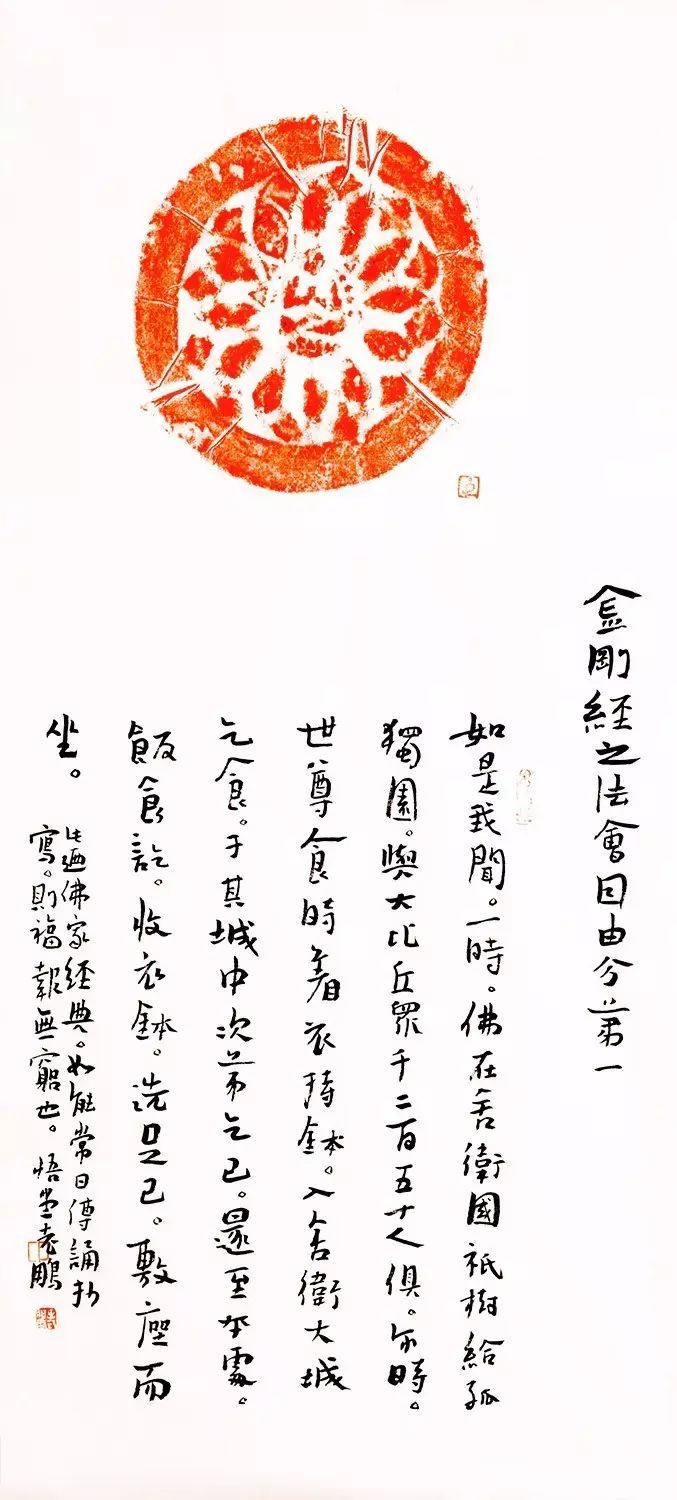 金剛經之法會因由分第一
如是我聞。一時。佛在舍衛國祇樹給孤
獨園。與大比丘眾千二百五十人俱。尔時。
世尊食時着衣持鉢。入舍衛大城
乞食。于其城中次第乞已。還至本處。
飯食訖。收衣鉢。洗足已。敷座而
坐。
此迺佛家經典。如能常日傳誦抄
寫。則福報無窮也。悟堂鵬